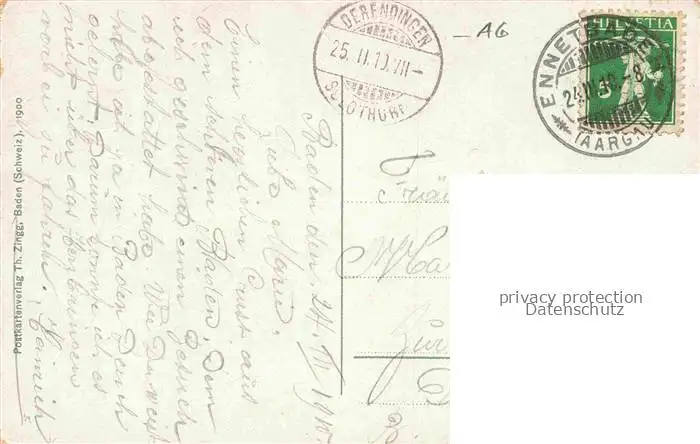 Baden den 24. II. 1910.
Liebe Marie.
Einen herzlichen Gruss aus
dem schönen Baden, dem
ich geschwind einen Besuch
abgestattet habe. Wie Du weist
habe ich ja in Baden Dench
gelernt. Darum konnte ich es
nicht über das
vorbei zu fahren. Heinrich
Postkartenverlag Th. Zingg, Baden (Schweiz). 1900
5.
DERENDINGEN
25. II. 10. VII –
SOLOTHURN
– AG
HELVETIA
5
ENNETBADEN
24. II. 10 – 8
(AARGAU)
privacy protection
Datenschutz